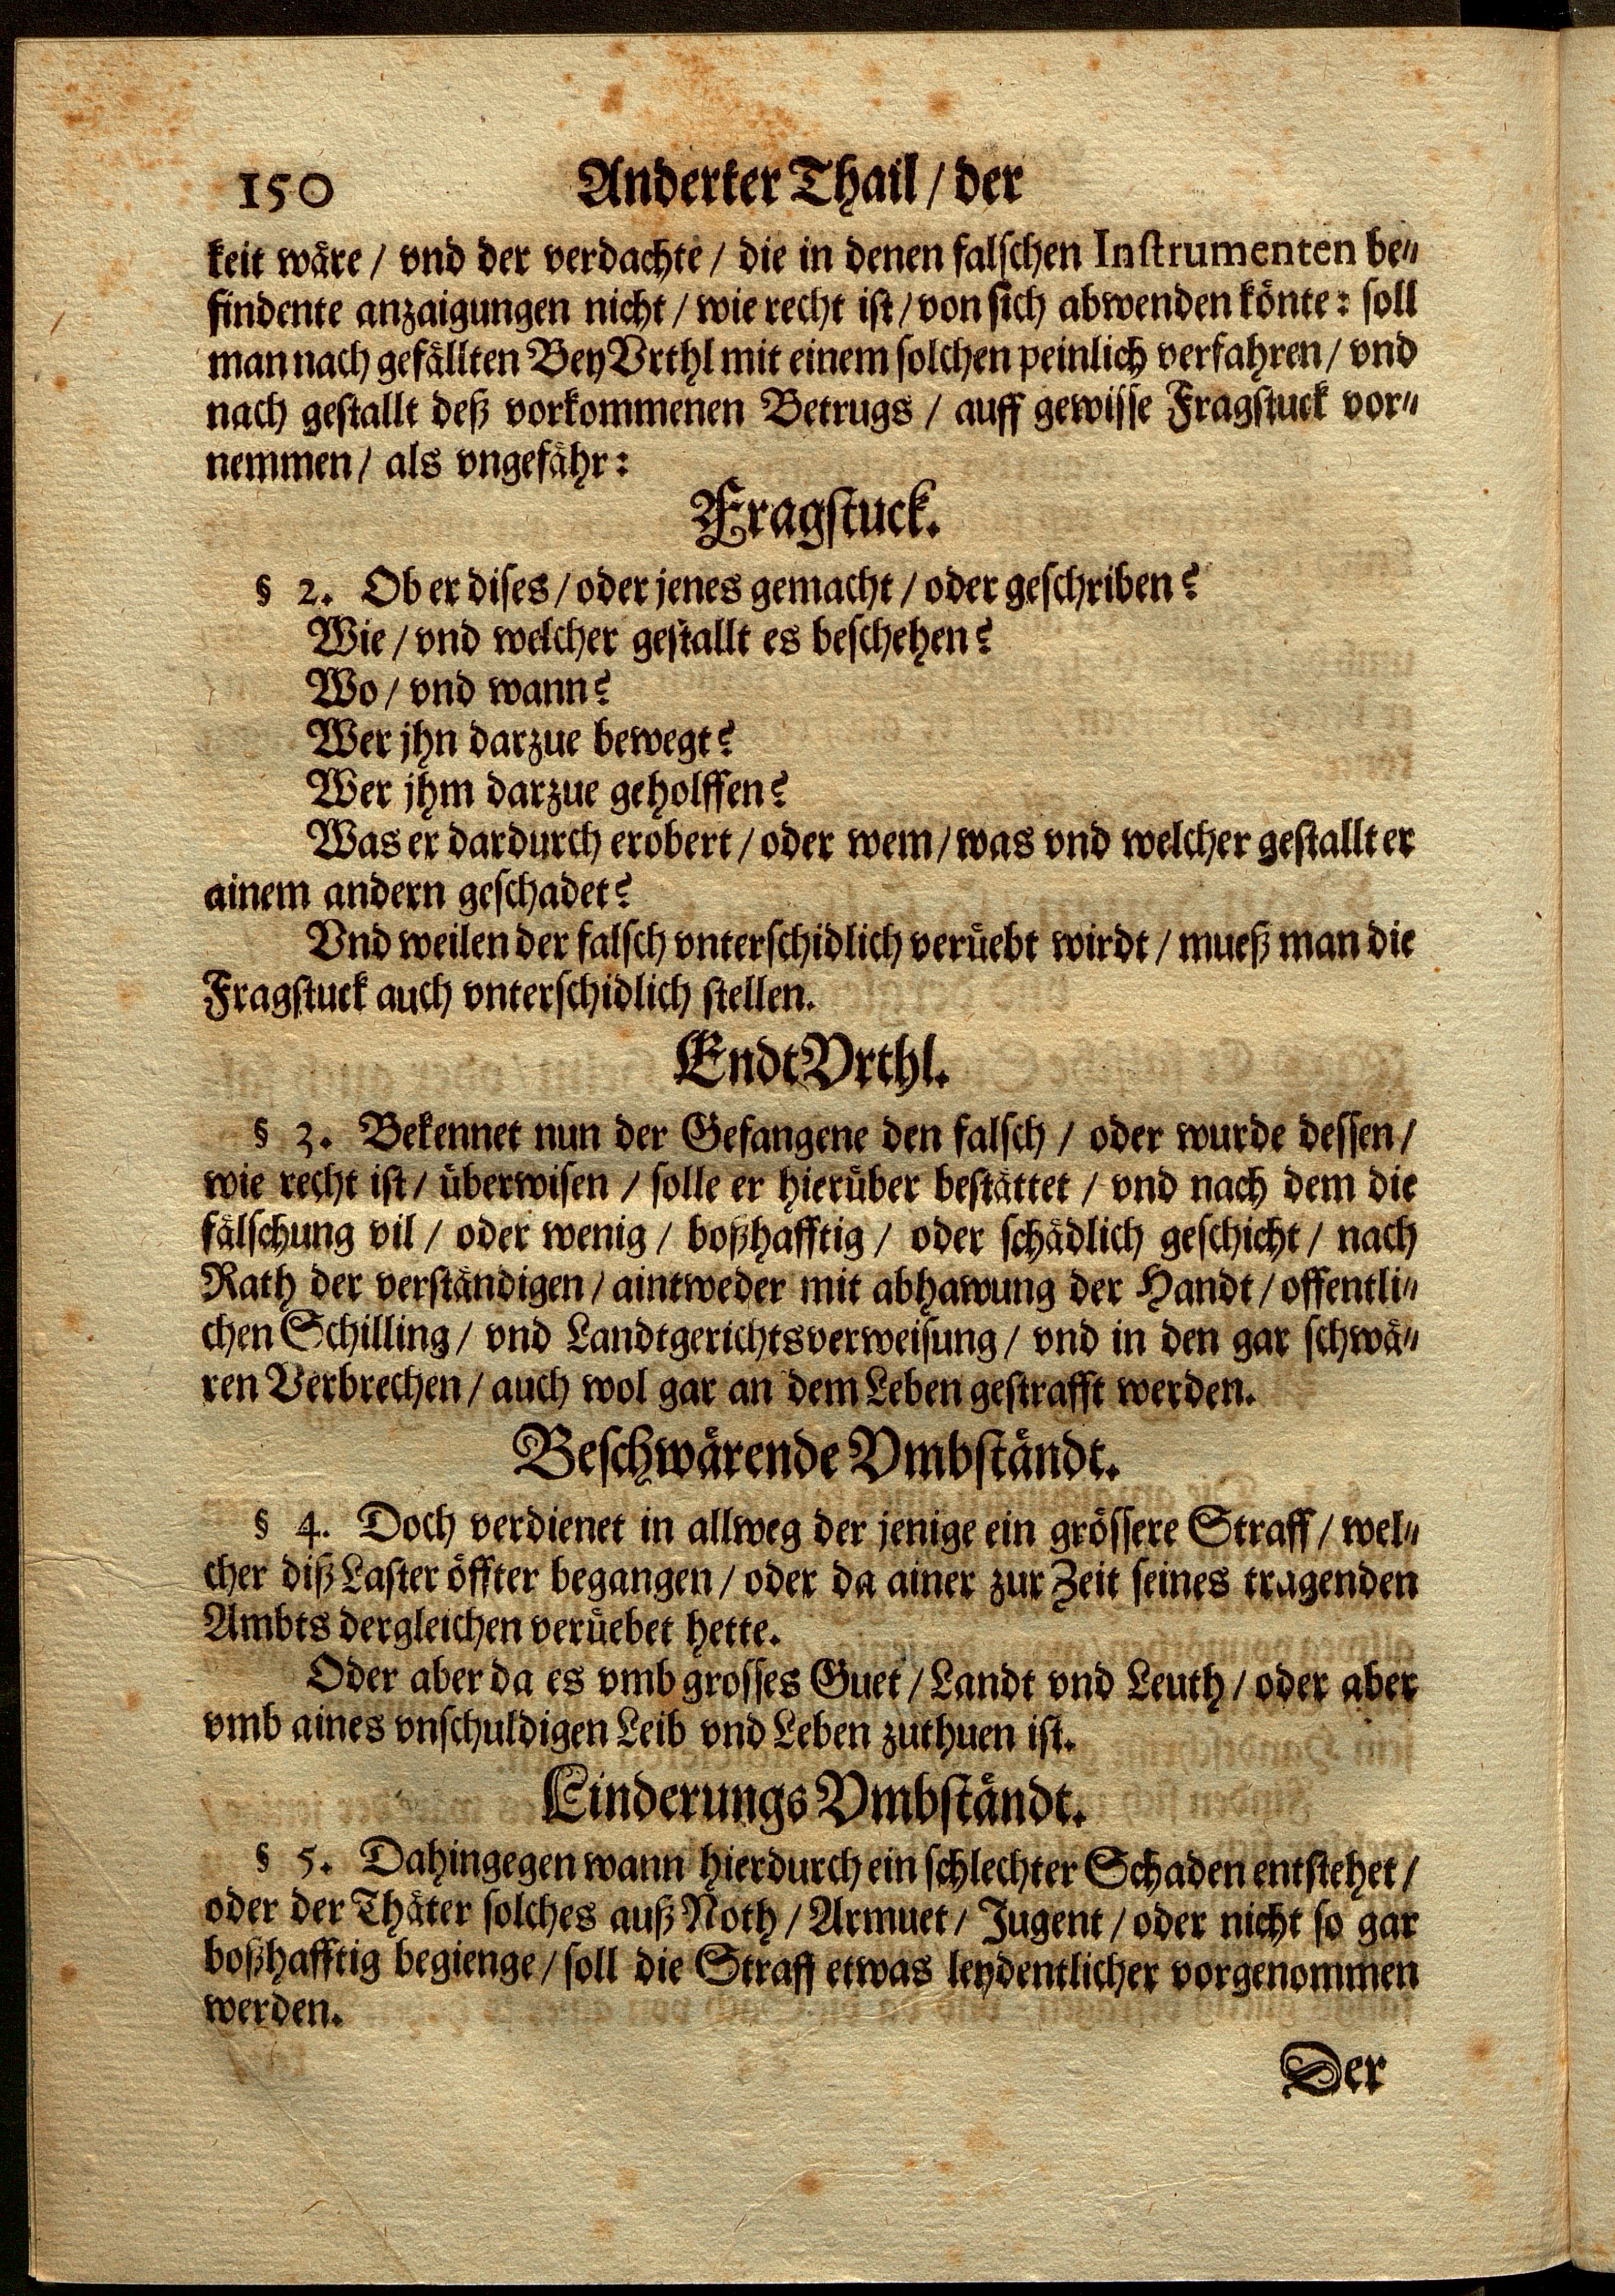 150 Anderter Thail / der
keit wäre / vnd der verdachte / die in denen falschen Instrumenten be-
findente anzaigungen nicht / wie recht ist / von sich abwenden könte: soll
man nach gefällten BeyVrthl mit einem solchen peinlich verfahren / vnd
nach gestallt deß vorkommenen Betrugs / auff gewisse Fragstuck vor-
nemmen / als vngefähr:
Fragstuck.
§ 2. Ob er dises / oder jenes gemacht / oder geschriben?
Wie / vnd welcher gestallt es beschehen?
Wo / vnd wann?
Wer jhn darzue bewegt?
Wer jhm darzue geholffen?
Was er dardurch erobert / oder wem / was vnd welcher gestallt er
ainem andern geschadet?
Vnd weilen der falsch vnterschidlich verüebt wirdt / mueß man die
Fragstuck auch vnterschidlich stellen.
EndtVrthl.
§ 3. Bekennet nun der Gefangene den falsch / oder wurde dessen /
wie recht ist / überwisen / solle er hierüber bestättet / vnd nach dem die
fälschung vil / oder wenig / boßhafftig / oder schädlich geschicht / nach
Rath der verständigen / aintweder mit abhawung der Handt / offentli-
chen Schilling / vnd Landtgerichtsverweisung / vnd in den gar schwä-
ren Verbrechen / auch wol gar an dem Leben gestrafft werden.
Beschwärende Vmbständt.
§ 4. Doch verdienet in allweg der jenige ein grössere Straff / wel-
cher diß Laster öffter begangen / oder da ainer zur Zeit seines tragenden
Ambts dergleichen verüebet hette.
Oder aber da es vmb grosses Guet / Landt vnd Leuth / oder aber
vmb aines vnschuldigen Leib vnd Leben zuthuen ist.
Linderungs Vmbständt.
§ 5. Dahingegen wann hierdurch ein schlechter Schaden entstehet /
oder der Thäter solches auß Noth / Armuet / Jugent / oder nicht so gar
boßhafftig begienge / soll die Straff etwas leydentlicher vorgenommen
werden.
Der